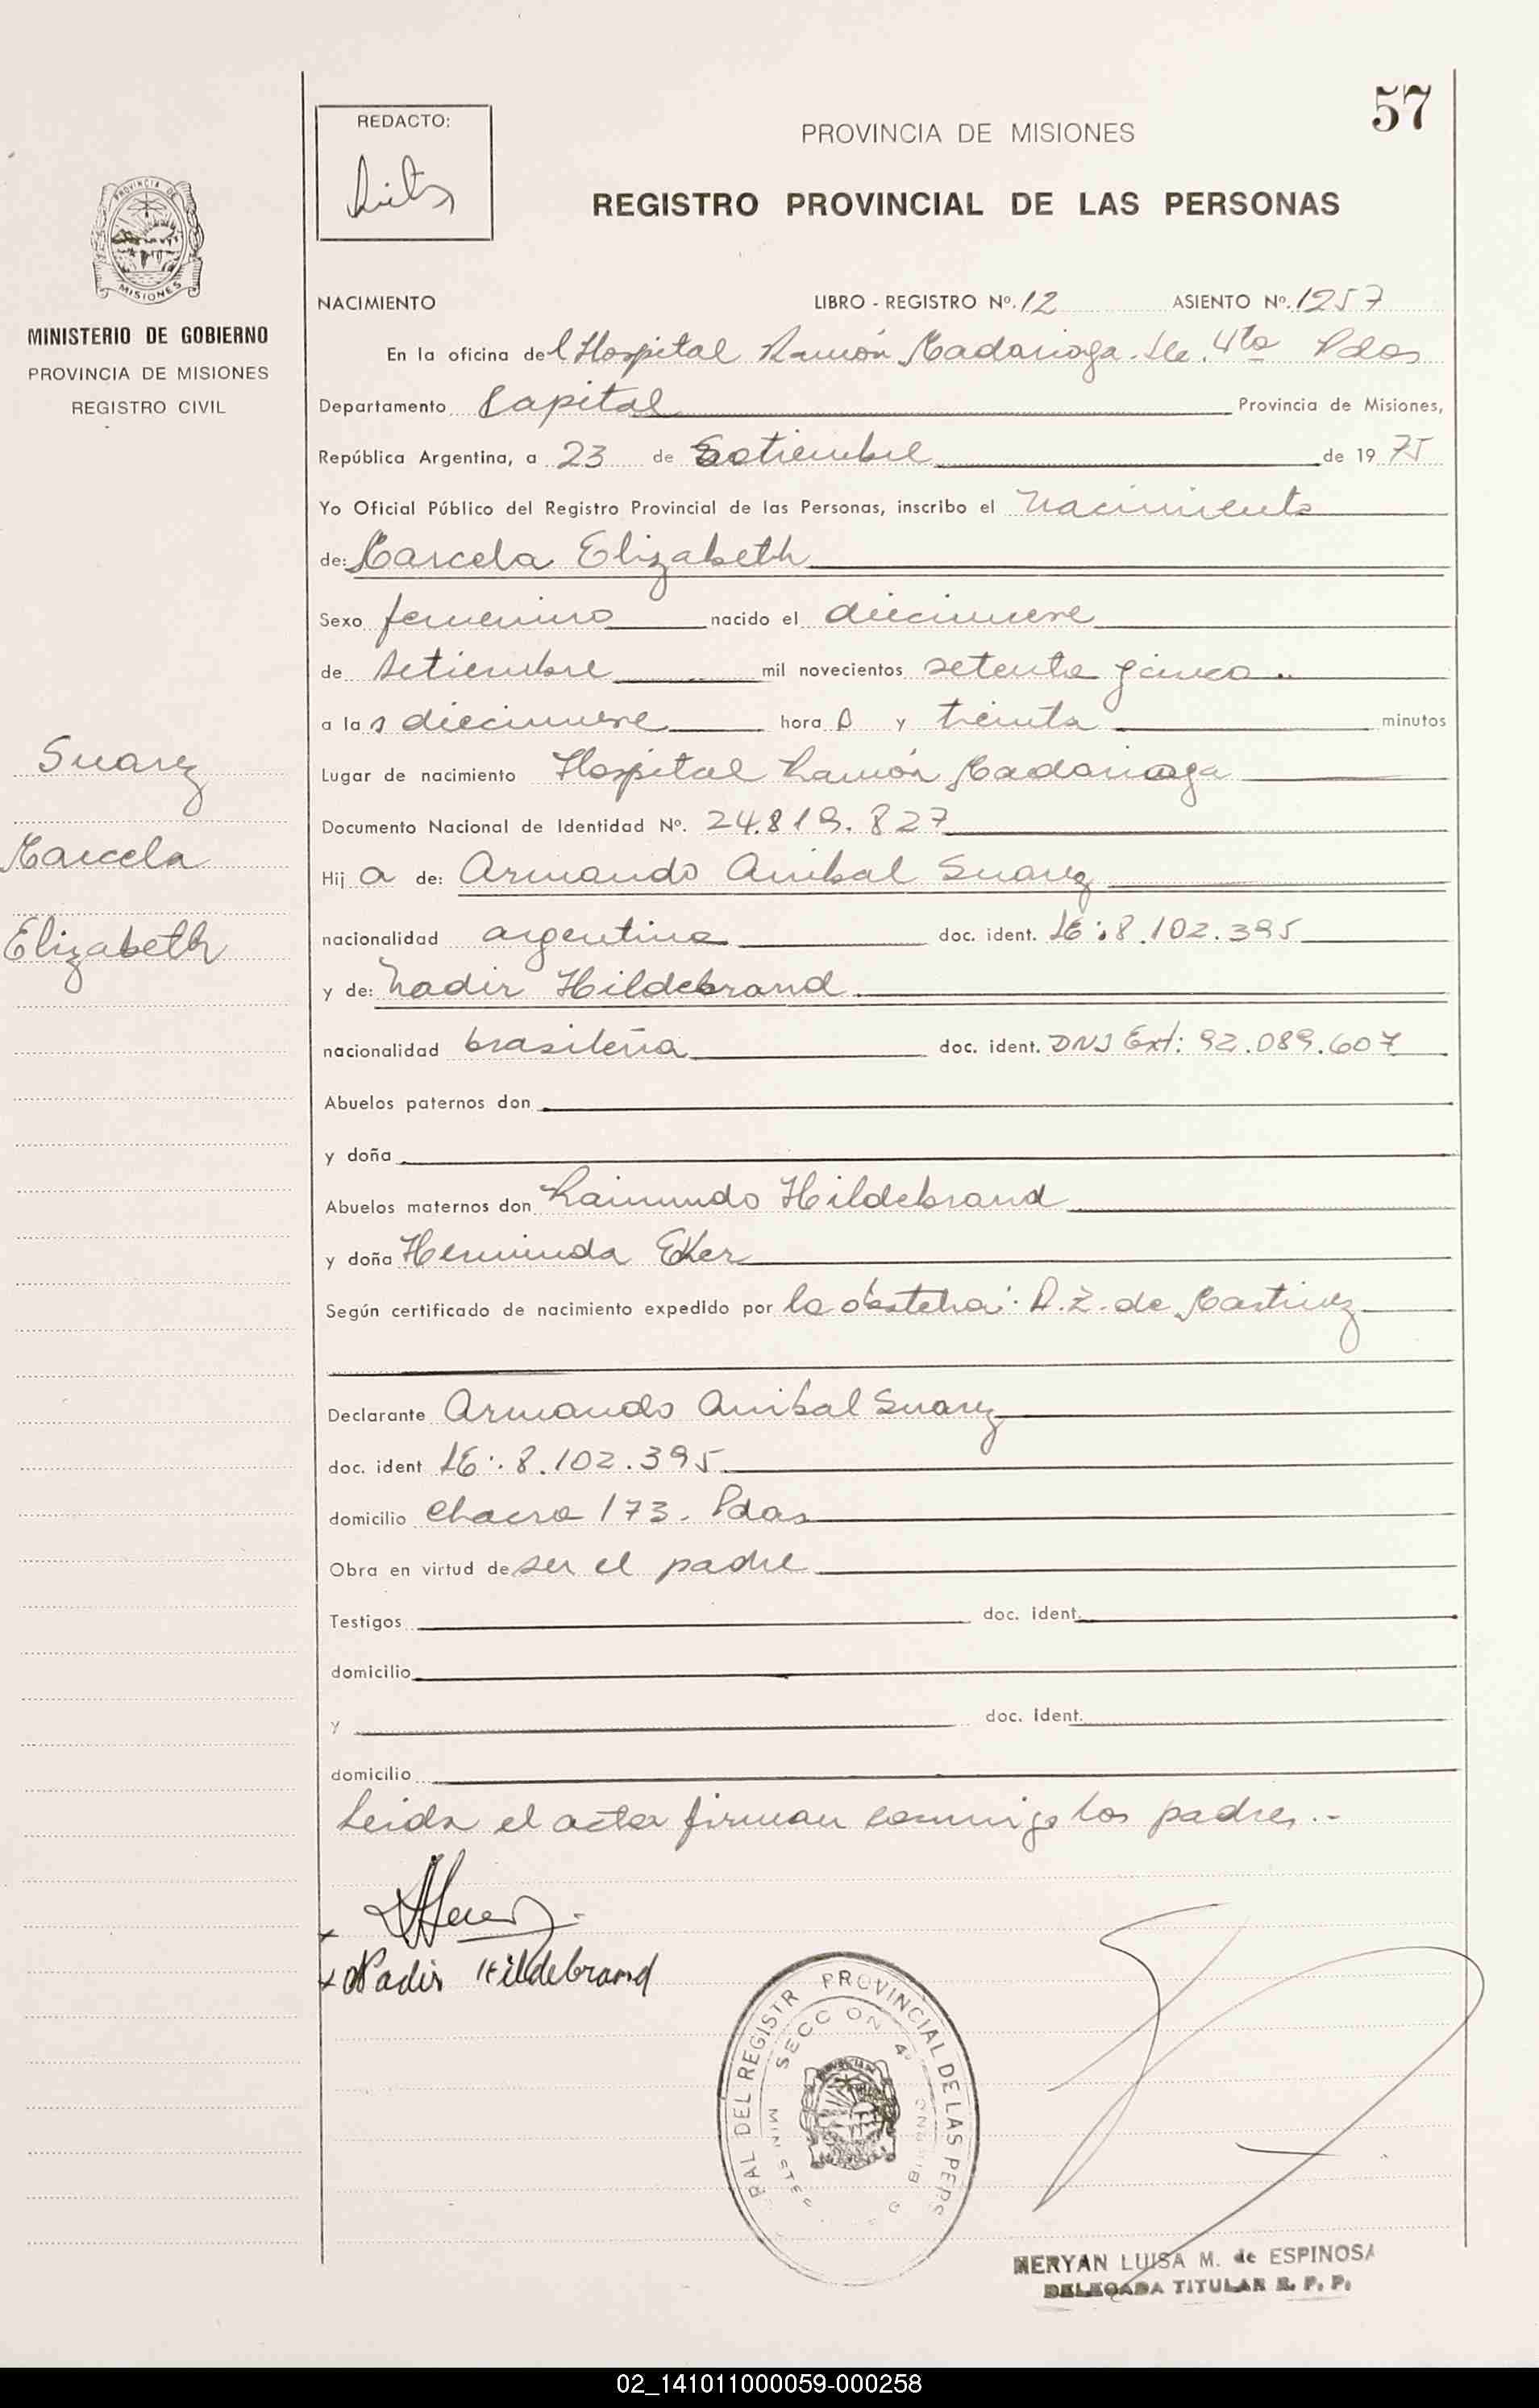 57
REDACTO:
PROVINCIA DE MISIONES
REGISTRO PROVINCIAL DE LAS PERSONAS
PROVINCIA DE
MISIONES
MINISTERIO DE GOBIERNO
PROVINCIA DE MISIONES
REGISTRO CIVIL
NACIMIENTO LIBRO - REGISTRO Nº. 12 ASIENTO Nº. 1257
En la oficina del Hospital Ramón Madariaga. Sec. 4ta Pdas
Departamento Capital Provincia de Misiones,
República Argentina, a 23 de Setiembre de 1975
Yo Oficial Público del Registro Provincial de las Personas, inscribo el nacimiento
de: Marcela Elizabeth
Sexo femenino nacido el diecinueve
de setiembre mil novecientos setenta y cinco
a las diecinueve hora s y treinta minutos
Lugar de nacimiento Hospital Ramón Madariaga
Documento Nacional de Identidad Nº. 24.819.827
Hija de: Armando Anibal Suarez
nacionalidad argentina doc. ident. LE: 8.102.395
y de: Nadir Hildebrand
nacionalidad brasileña doc. ident. DNI Ext: 92.089.607
Abuelos paternos don
y doña
Abuelos maternos don Raimundo Hildebrand
y doña Herminda Eker
Según certificado de nacimiento expedido por la obstetra: A. Z. de Martinez
Declarante Armando Anibal Suarez
doc. ident LE: 8.102.395
domicilio Chacra 173. Pdas
Obra en virtud de ser el padre
Testigos doc. ident.
domicilio
y doc. ident.
domicilio
Leida el acta firman conmigo los padres.-
Suarez
Marcela
Elizabeth
Nadir Hildebrand
RAL DEL REGISTR PROVINCIAL DE LAS PERS
SECC ON 4º
MINISTER
MERYAN LUISA M. de ESPINOSA
DELEGADA TITULAR R. P. P.
02_141011000059-000258